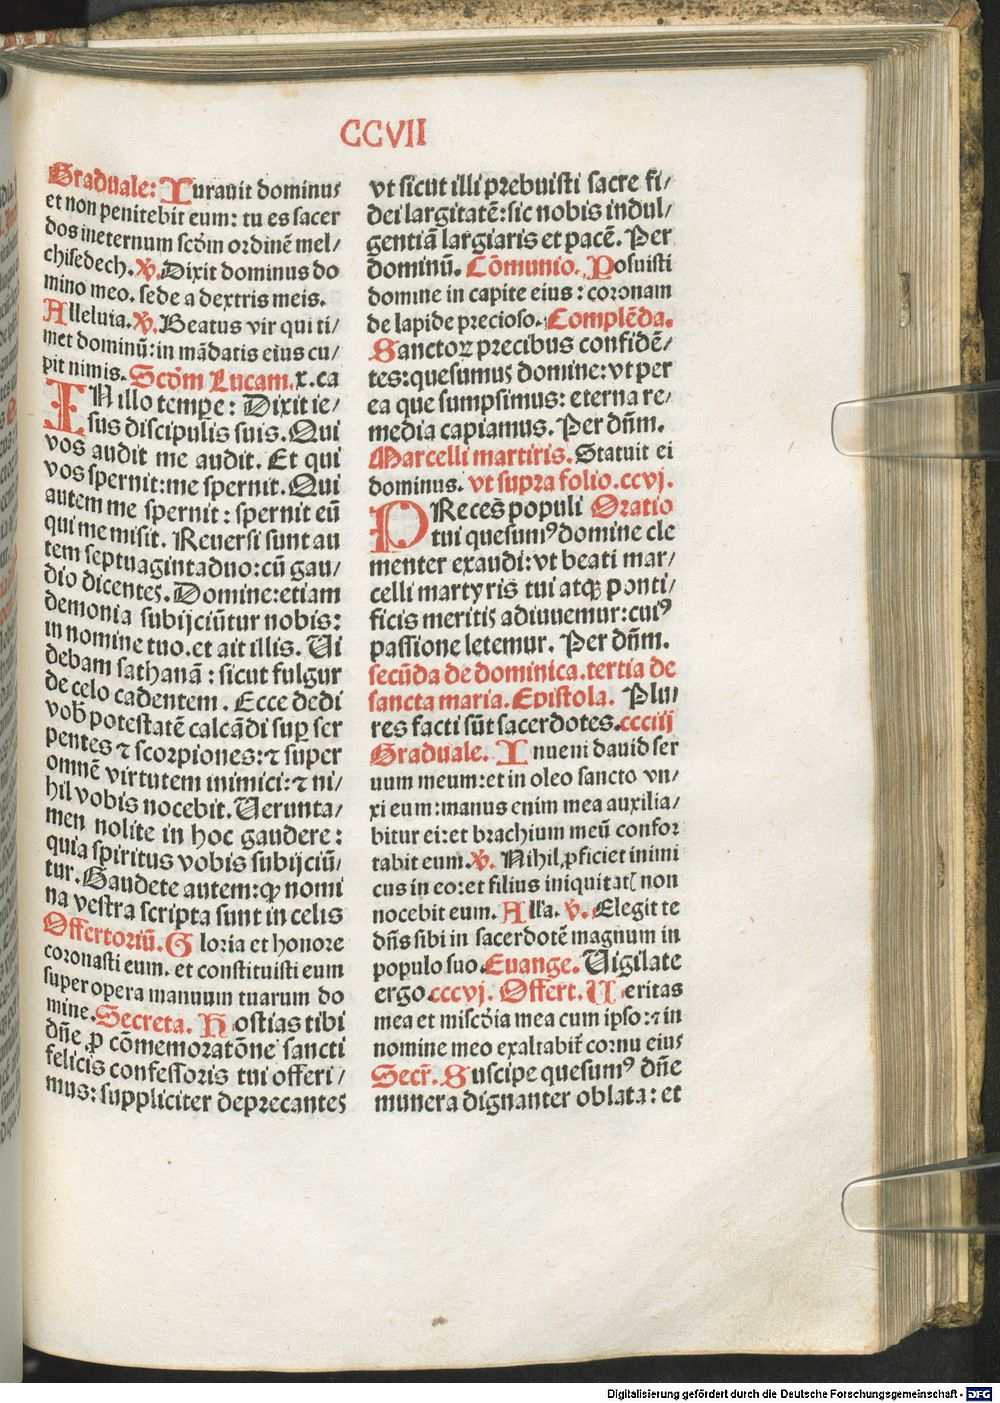 CCVII
Graduale: Iurauit dominus
et non penitebit eum: tu es sacer
dos ineternum scd̄m ordinē mel/
chisedech. ℣. Dixit dominus do
mino meo. sede a dextris meis.
Alleluia. ℣. Beatus vir qui ti/
met dominū: in mādatis eius cu/
pit nimis. Scd̄m Lucam. x. ca
IN illo tempe: Dixit ie/
sus discipulis suis. Qui
vos audit me audit. Et qui
vos spernit: me spernit. Qui
autem me spernit: spernit eū
qui me misit. Reuersi sunt au
tem septuagintaduo: cū gau/
dio dicentes. Domine: etiam
demonia subijciūtur nobis:
in nomine tuo. et ait illis. Ui
debam sathanā: sicut fulgur
de celo cadentem. Ecce dedi
vob̄ potestatē calcādi sup̱ ser
pentes ⁊ scorpiones: ⁊ super
omnē virtutem inimici: ⁊ ni/
hil vobis nocebit. Uerunta/
men nolite in hoc gaudere:
quia spiritus vobis subijciū/
tur. Gaudete autem: ꝙ nomi
na vestra scripta sunt in celis
Offertoriū. Gloria et honore
coronasti eum. et constituisti eum
super opera manuum tuarum do
mine. Secreta. Hostias tibi
dn̄e ꝓ cōmemoratōne sancti
felicis confessoris tui offeri/
mus: suppliciter deprecantes
vt sicut illi prebuisti sacre fi/
dei largitatē: sic nobis indul/
gentiā largiaris et pacē. Per
dominū. Cōmunio. Posuisti
domine in capite eius: coronam
de lapide precioso. Complēda.
Sanctoꝝ precibus confidē/
tes: quesumus domine: vt per
ea que sumpsimus: eterna re/
media capiamus. Per dn̄m.
Marcelli martiris. Statuit ei
dominus. vt supra folio. ccvj.
PReces populi Oratio
tui quesumꝰ domine cle
menter exaudi: vt beati mar/
celli martyris tui atqꝫ ponti/
ficis meritis adiuuemur: cuiꝰ
passione letemur. Per dn̄m.
secūda de dominica. tertia de
sancta maria. Epistola. Plu
res facti sūt sacerdotes. ccciij
Graduale. Inueni dauid ser
uum meum: et in oleo sancto vn/
xi eum: manus enim mea auxilia/
bitur ei: et brachium meū confor
tabit eum. ℣. Nihil ꝓficiet inimi
cus in eo: et filius iniquitatꝭ non
nocebit eum. All'a. ℣. Elegit te
dn̄s sibi in sacerdotē magnum in
populo suo. Euange. Uigilate
ergo. cccvj. Offert. Ueritas
mea et miscd̄ia mea cum ipso: ⁊ in
nomine meo exaltabit̄ cornu eius
Secr̄. Suscipe quesumꝰ dn̄e
munera dignanter oblata: et
Digitalisierung gefördert durch die Deutsche Forschungsgemeinschaft - DFG